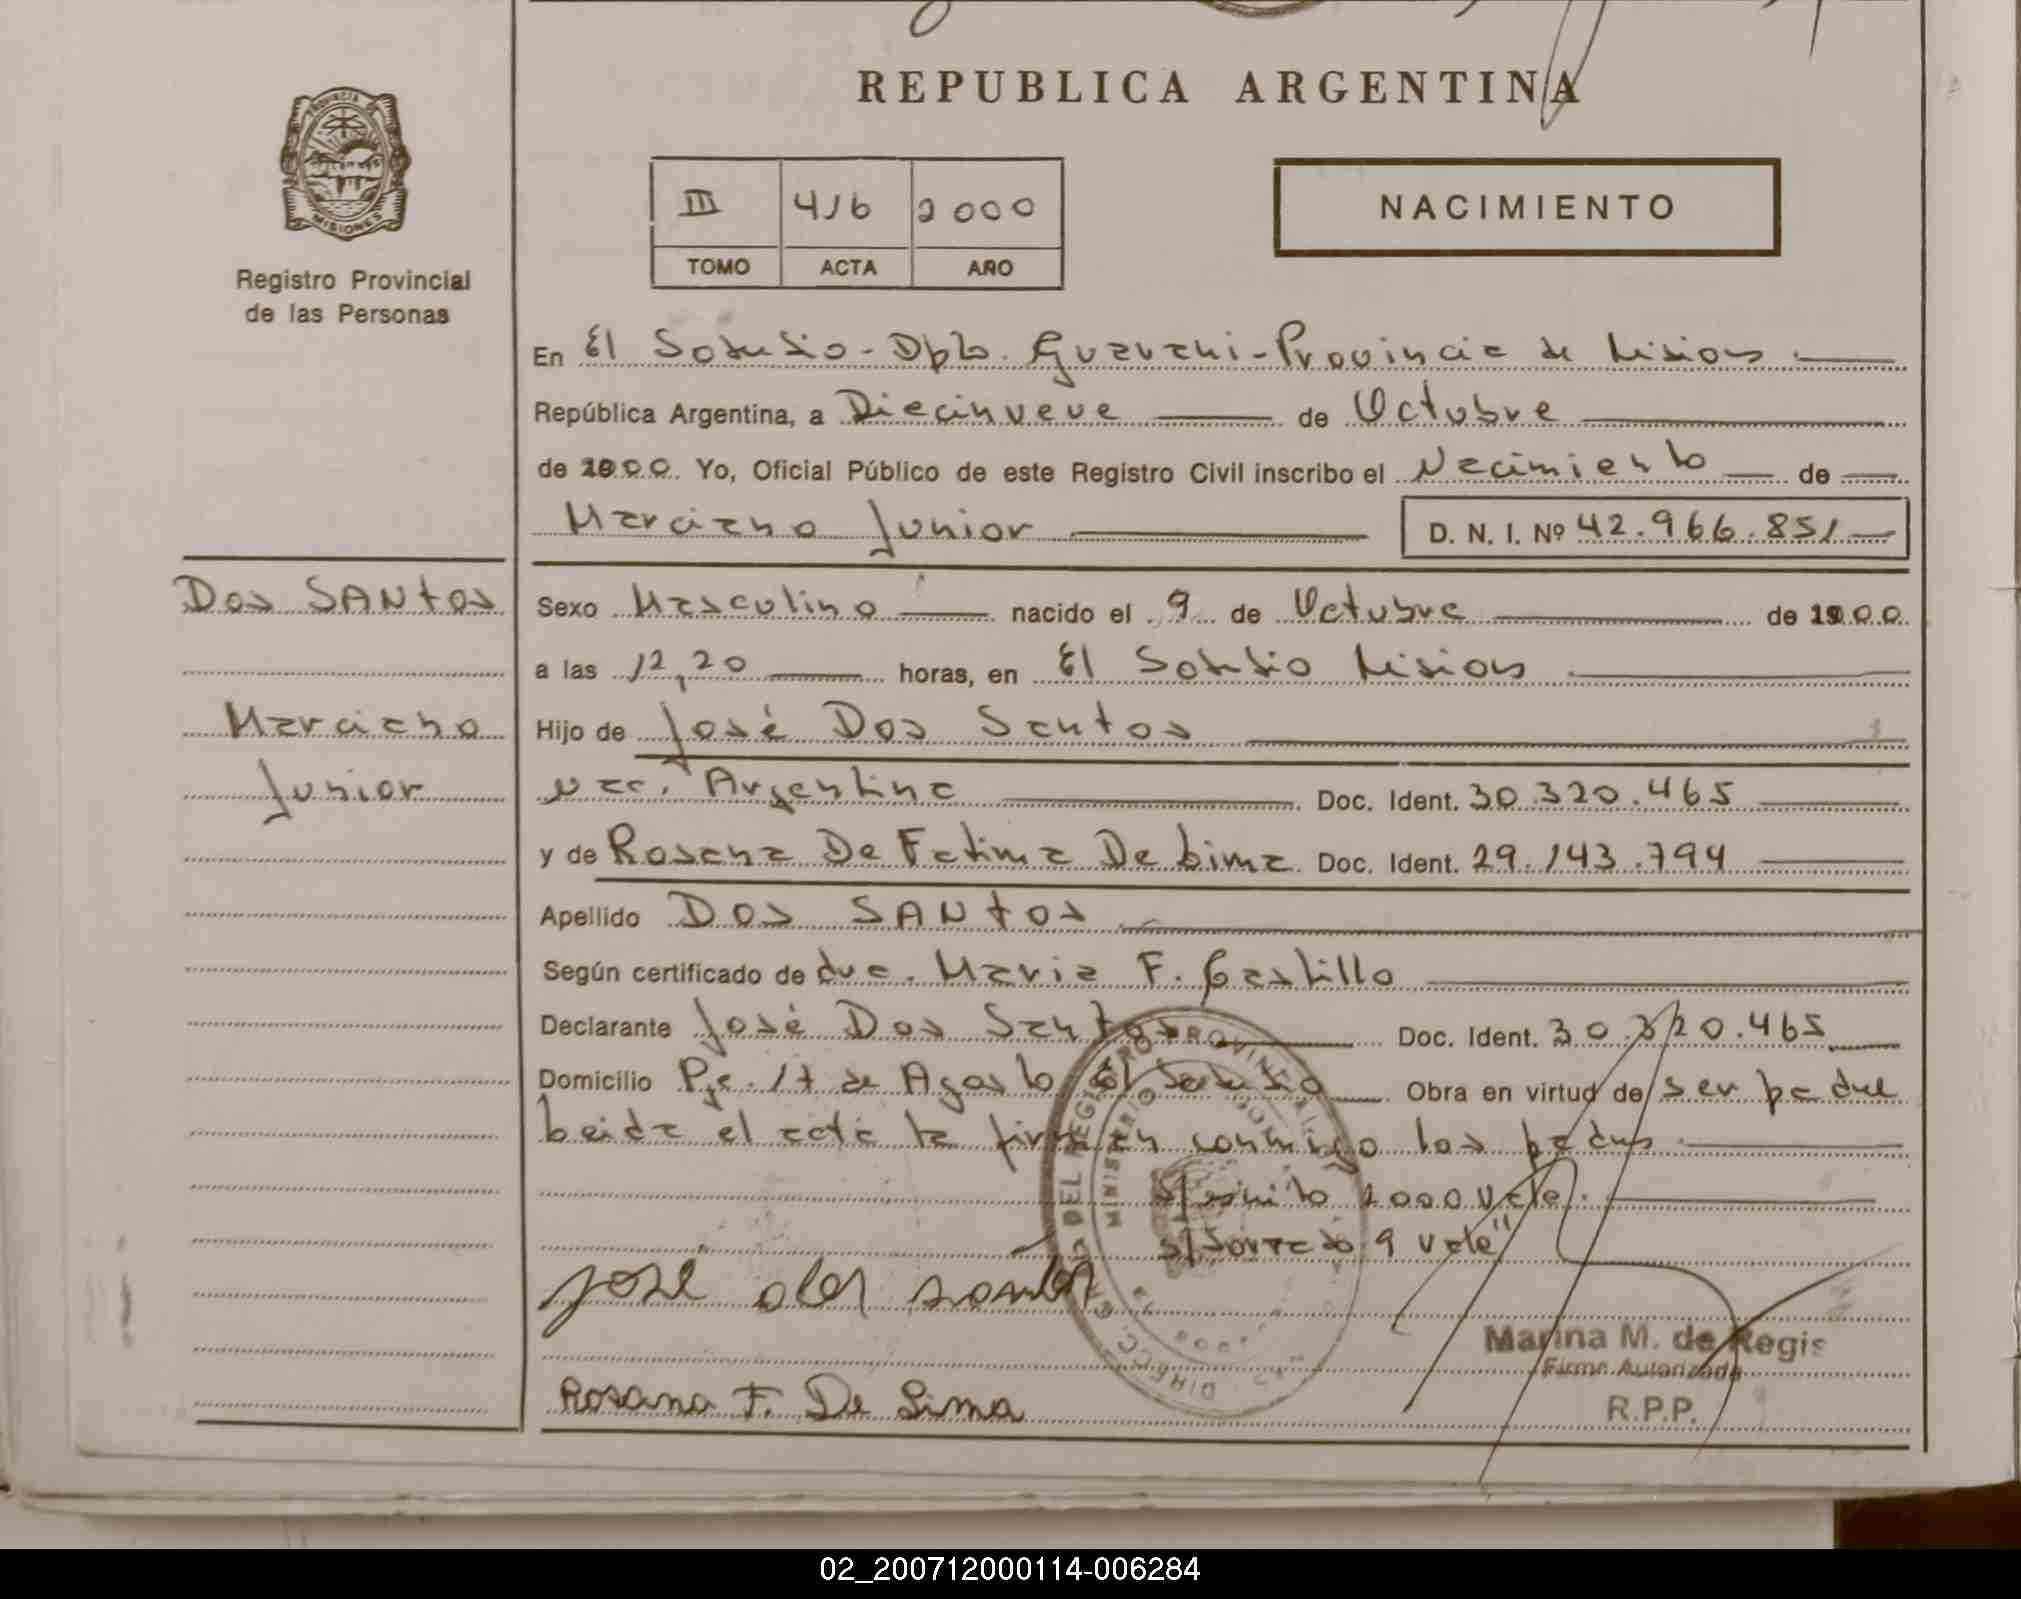 REPUBLICA ARGENTINA
PROVINCIA DE
MISIONES
Registro Provincial
de las Personas
III 416 2000
TOMO ACTA AÑO
NACIMIENTO
En El Soberbio - Dpto. Guarani - Provincia de Misiones
República Argentina, a Diecinueve de Octubre
de 2000. Yo, Oficial Público de este Registro Civil inscribo el Nacimiento de
Marciano Junior D. N. I. Nº 42.966.851
Dos SANtos
Marciano
Junior
Sexo Masculino nacido el 9 de Octubre de 2000
a las 12,20 horas, en El Soberbio Misiones
Hijo de José Dos Santos
Nac. Argentina Doc. Ident. 30.320.465
y de Rosana De Fatima De Lima Doc. Ident. 29.143.794
Apellido Dos SANtos
Según certificado de dra. Maria F. Castillo
Declarante José Dos Santos Doc. Ident. 30.320.465
Domicilio Pje. 17 de Agosto El Soberbio Obra en virtud de ser padre
Leida el acta la firman conmigo los padres
2000 Vale
9 vale"
José dos santos
Rosana F. De Lima
DIRECC. DEL REGISTRO PROVINCIAL
MINISTERIO
Marina M. de Regis
Firma Autorizada
R.P.P.
02_200712000114-006284